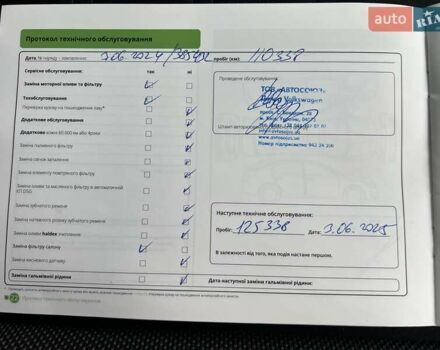 auto RIA
Протокол технічного обслуговування
Дата № наряду - замовлення: 3.06.2024 / пробіг (км): 110338
Сервісне обслуговування: так ні
Заміна моторної оливи та фільтру
Техобслуговування
Перевірка кузову на пошкодження лаку*
Додаткове обслуговування
Додатково кожні 60.000 км або 4роки
Заміна паливного фільтру
Заміна свічок запалення
Заміна елементу повітряного фільтру
Заміна оливи та масляного фільтру в автоматичній КП DSG
Заміна зубчатого ременя
Заміна натяжного ролику зубчатого ременя
Заміна оливи haldex зчеплення
Заміна фільтру салону
Заміна висівного датчику
Заміна гальмівної рідини
Проведене обслуговування:
ТОВ «АВТОСОЮЗ»
Volkswagen
www.avtosojuz.ua
Номер підприємства: 942 24 200
Наступне технічне обслуговування:
Пробіг: 125338 Дата: 3.06.2025
В залежності від того, яка подія настане першою.
Дата наступної заміни гальмівної рідини:
22 Протокол технічного обслуговування